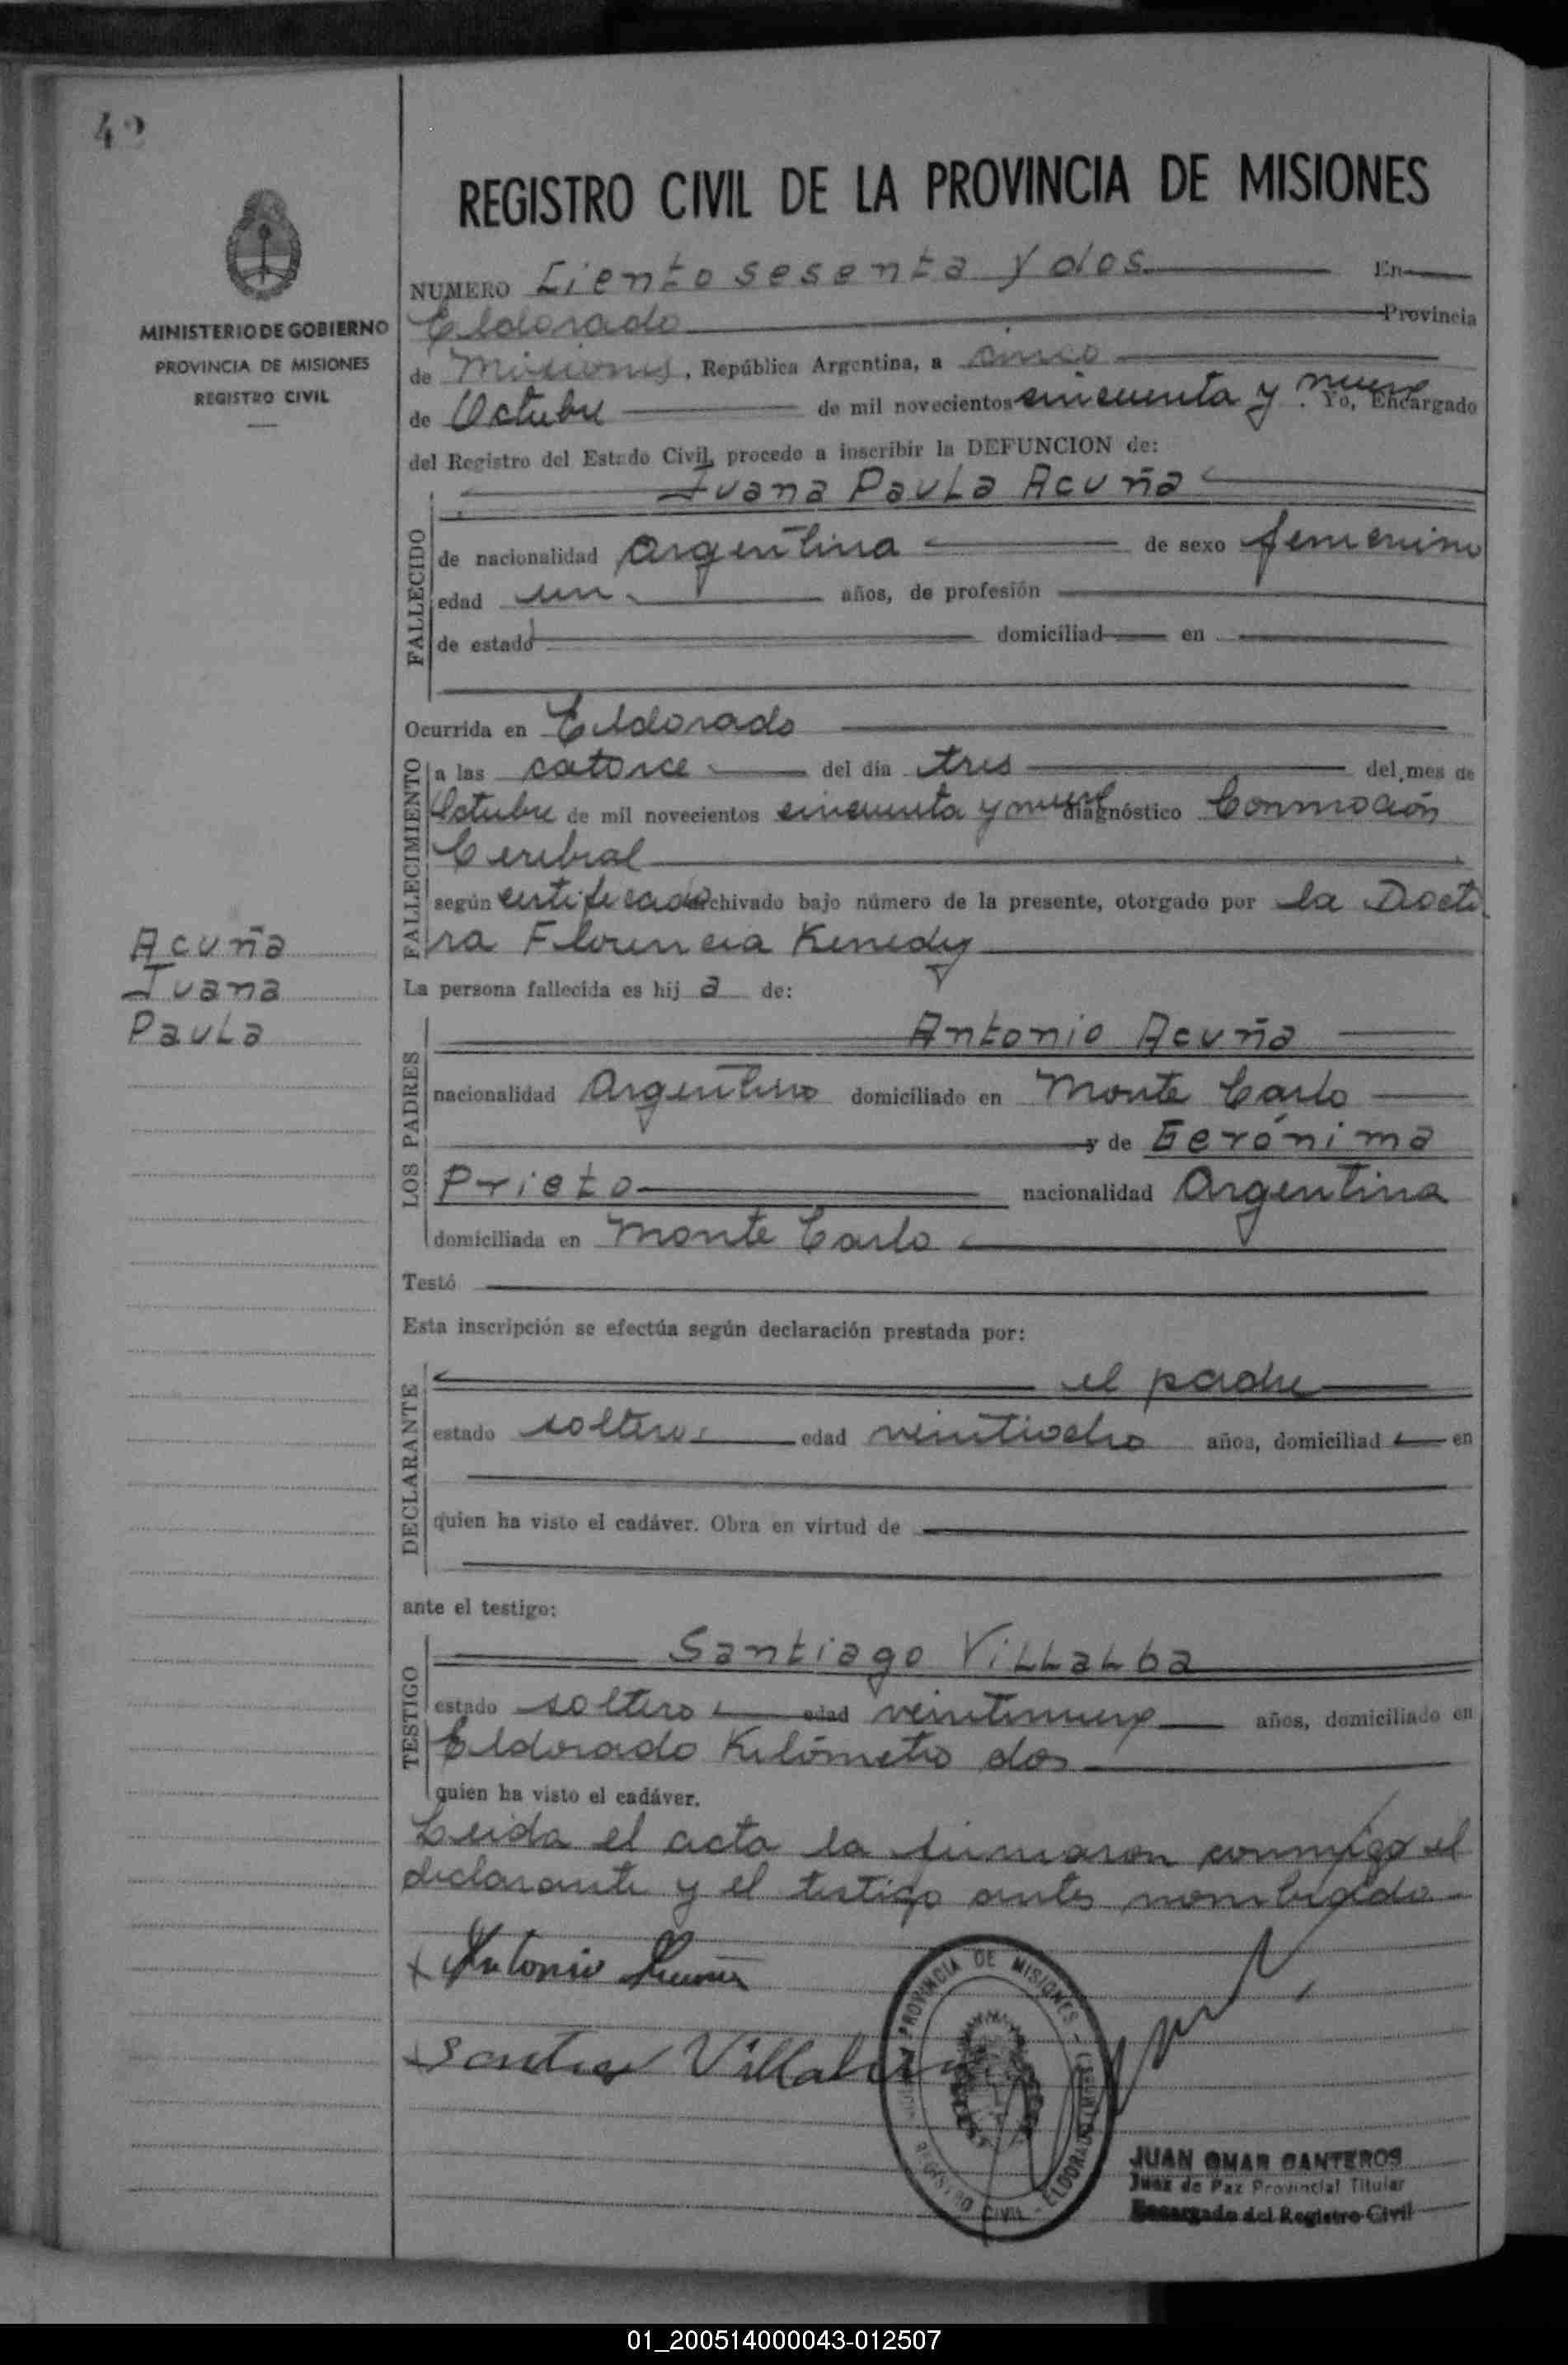 42
MINISTERIO DE GOBIERNO
PROVINCIA DE MISIONES
REGISTRO CIVIL
REGISTRO CIVIL DE LA PROVINCIA DE MISIONES
NUMERO Ciento sesenta y dos En
Eldorado Provincia
de Misiones, República Argentina, a cinco
de Octubre de mil novecientos cincuenta y nueve. Yo, Encargado
del Registro del Estado Civil, procedo a inscribir la DEFUNCION de:
Juana Paula Acuña
FALLECIDO
de nacionalidad Argentina de sexo femenino
edad un años, de profesión
de estado domiciliad en
Ocurrida en Eldorado
FALLECIMIENTO
a las catorce del día tres del mes de
Octubre de mil novecientos cincuenta y nueve diagnóstico Conmoción
Cerebral
según certificado archivado bajo número de la presente, otorgado por la Docto
ra Florencia Kenedy
Acuña
Juana
Paula
La persona fallecida es hij a de:
LOS PADRES
Antonio Acuña
nacionalidad Argentino domiciliado en Monte Carlo
y de Gerónima
Prieto nacionalidad Argentina
domiciliada en Monte Carlo
Testó
Esta inscripción se efectúa según declaración prestada por:
DECLARANTE
el padre
estado soltero edad veintiocho años, domiciliad en
quien ha visto el cadáver. Obra en virtud de
ante el testigo:
TESTIGO
Santiago Villalba
estado soltero edad veintinueve años, domiciliado en
Eldorado Kilómetro dos
quien ha visto el cadáver.
Leida el acta la firmaron conmigo el
declarante y el testigo antes nombrado
x Antonio Acuña
Villalba
PROVINCIA DE MISIONES
REGISTRO CIVIL - ELDORADO
JUAN OMAR CANTEROS
Juez de Paz Provincial Titular
Encargado del Registro Civil
01_200514000043-012507